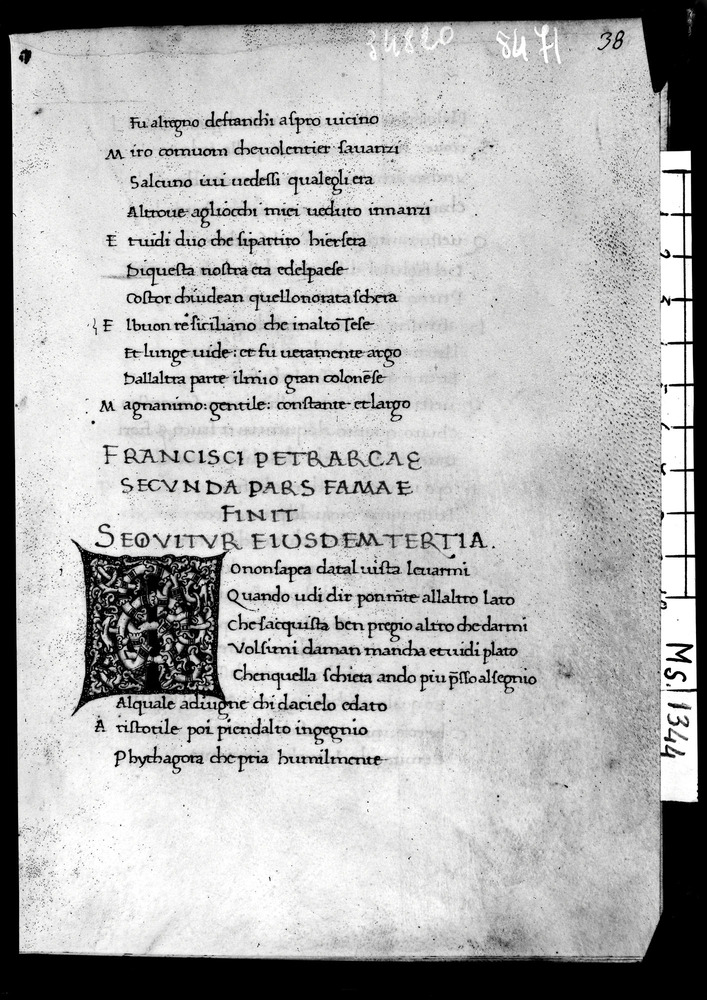 34820 8471 38
Fu alregno defranchi aspro uicino
M iro comuom cheuolentier sauanzi
Salcuno iui uedessi qualegliera
Altroue agliocchi miei ueduto innanzi
E tuidi duo che sipartiro hiersera
Diquesta nostra eta edelpaese
Costor chiudean quellonorata schera
E lbuon re siciliano che inalto ītese
Et lunge uide: et fu ueramente argo
Dallaltra parte ilmio gran colonēse
M agnanimo: gentile: constante et largo
FRANCISCI PETRARCAE
SECVNDA PARS FAMAE
FINIT
SEQVITVR EIUSDEM TERTIA.
Ononsapea datal uista leuarmi
Quando udi dir pon mēte allaltro lato
Che sacquista ben pregio altro che darmi
Volsimi daman mancha etuidi plato
Chenquella schiera ando piu p̄sso alsegnio
Alquale adiugne chi dacielo edato
A ristotile poi piendalto ingegnio
Phythagora che pria humilmente
1 2 3 4 5 6 7 8 9 10
Ms. 1344